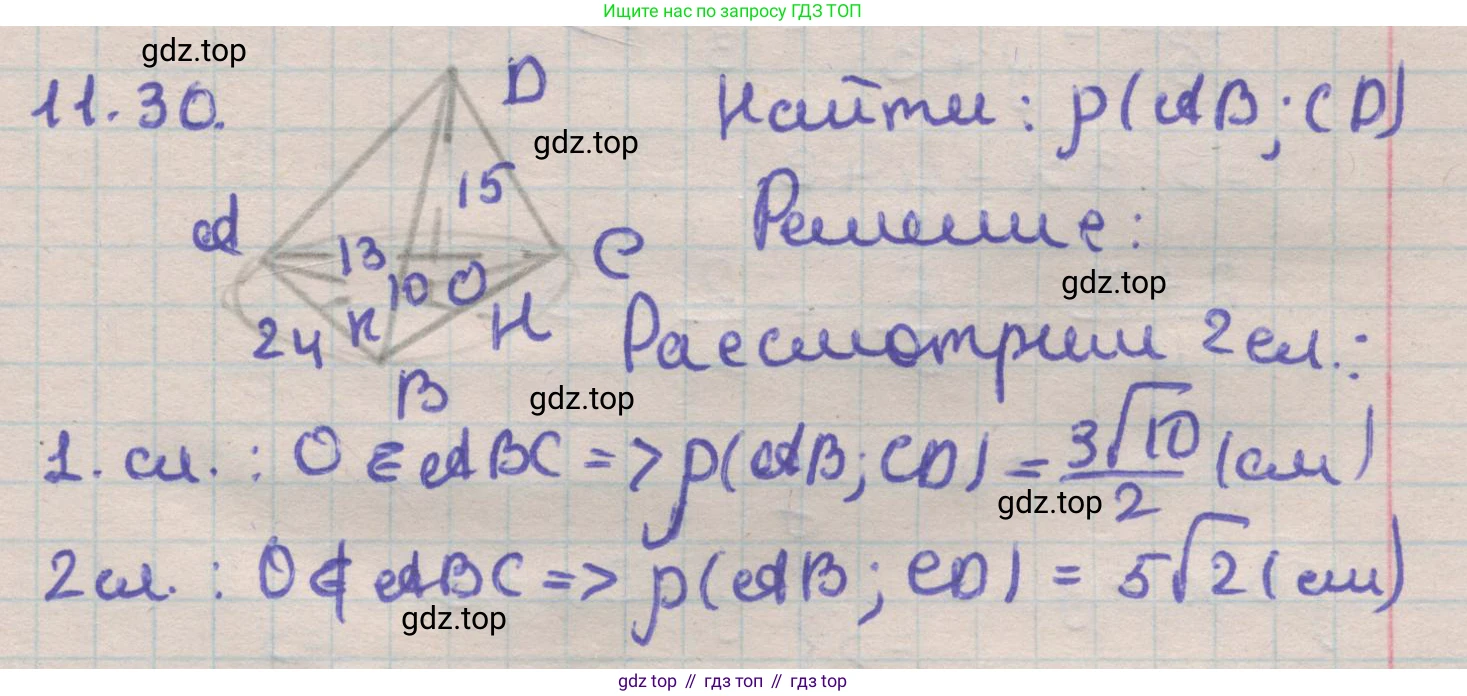 Ищите нас по запросу ГДЗ ТОП
gdz.top
11.30.
D
Найти: ρ(AB; CD)
gdz.top
15
A
Решение:
13
C
10 O
gdz.top
24 K
H
Рассмотрим 2 сл.:
B
gdz.top
1. сл.: O ∈ ABC => ρ(AB; CD) = 3√10/2 (см)
gdz.top
2 сл.: O ∉ ABC => ρ(AB; CD) = 5√2 (см)
gdz.top
gdz top // гдз топ // gdz top